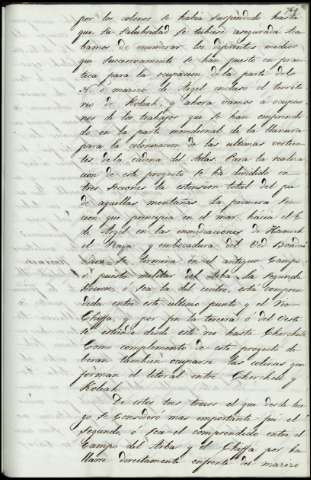 por los colonos se habia suspendido hasta
que su salubridad se tubiese asegurada. Aca
bamos de enumerar los diferentes medios
que sucesivamente se han puesto en prac
tica para la ocupacion de la parte del
N. O. marezo de Argel incluso el territo
rio de Koleah, y ahora vamos a ocupar
nos de los trabajos que se han emprendi
do en la parte meridional de la llanura
para la colonizacion de las ultimas vertien
tes de la cadena del Atlas. Para la realiza
cion de este proyecto se ha dividido en
tres secciones la estension total del pie
de aquellas montañas. La primera sec
cion que principia en el mar hacia el E
de Argel en las inmediaciones de Hamich
el Raya y embocadura del Oed
se termina en el antiguo Campo
o puesto militar del Arba, la segunda
o sea la del centro, esta compren
dida entre este ultimo punto y el Rio
Chiffa y por fin la tercera o del Oeste
se estiende desde este rio hasta Cherchele
Como complemento de este proyecto de
beran tambien ocuparse las colinas que
forman el litoral entre Cherchele y
Koleah.
De estos tres trozos el que desde lue
go se consideró mas importante fue el
segundo, o sea el comprendido entre el
Campo del Arba y el Chiffa por ha
llarse directamente enfrente del marezo